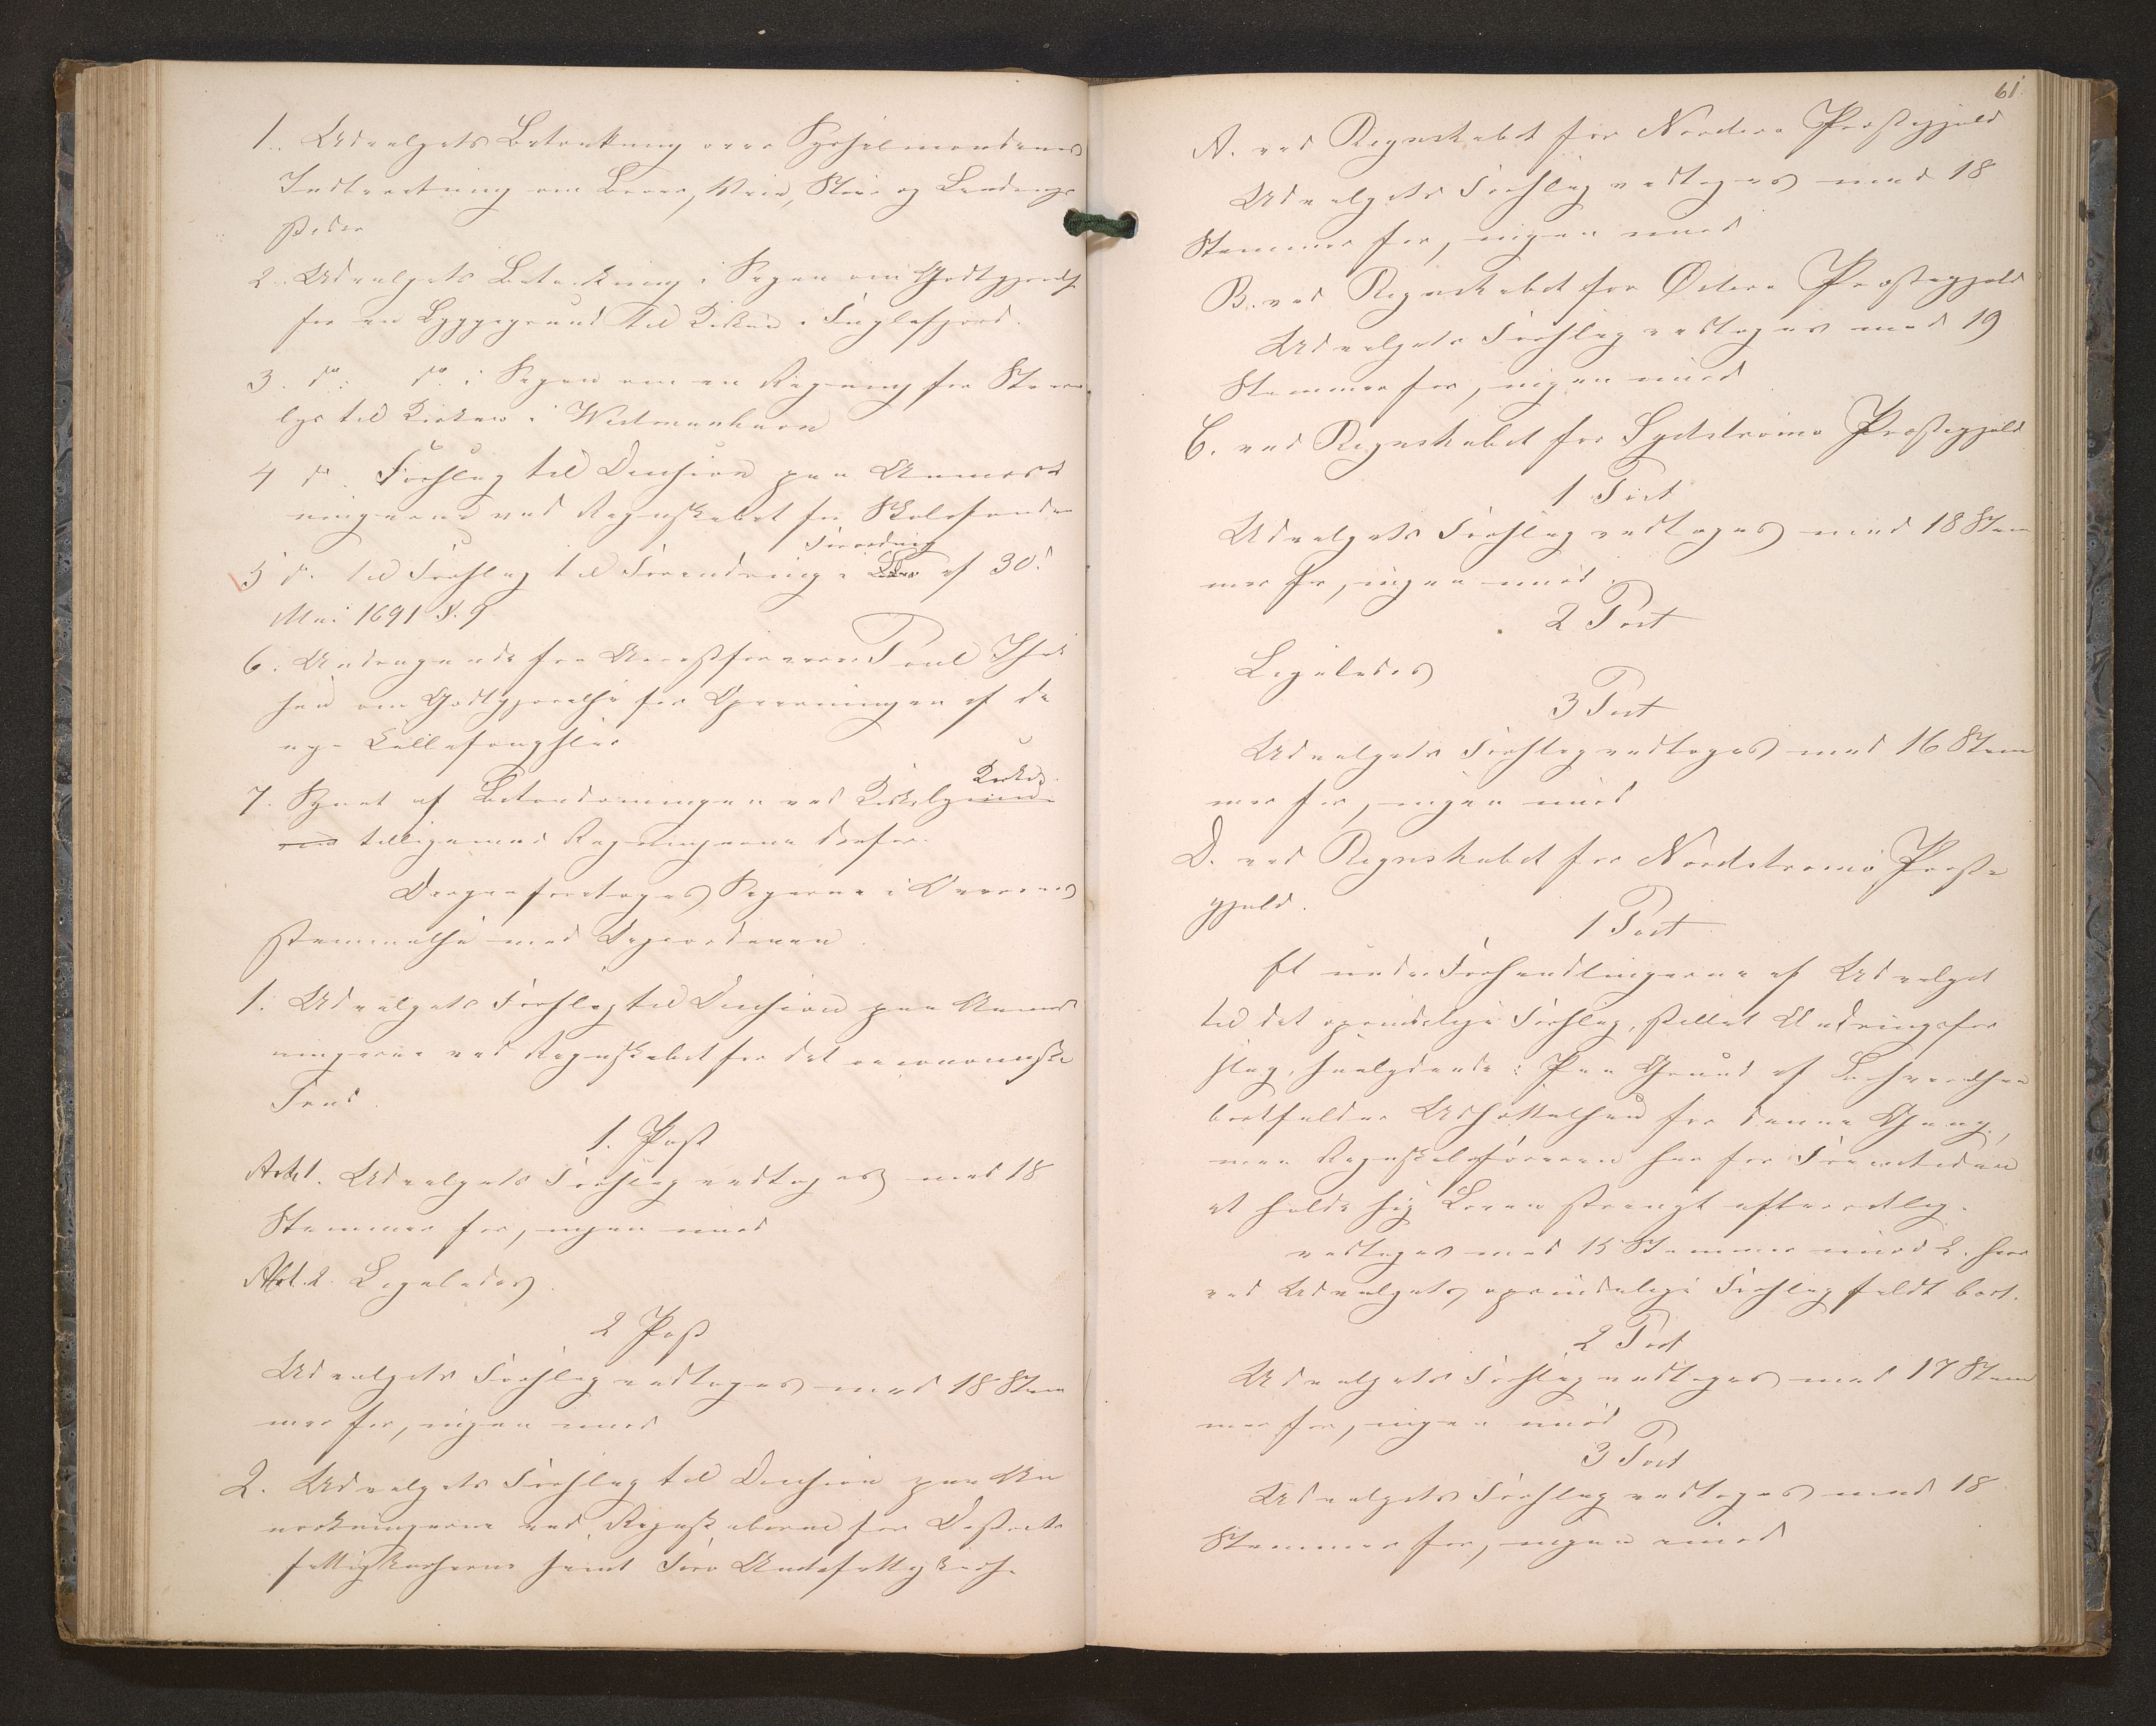 1. Udvalgets Betænkning over Sysselmændenes
Indberetning om Broer, Veie, Støer og Landings-
steder
2. Udvalgets Betænkning i Sagen om Godtgjørelse
for en Byggegrund til Kirken i Fuglefjord.
3. do: do. i Sagen om en Regning for Stearin-
lys til Kirken i Westmanhavn
4 do. Forslag til Decision paa Anmærk
ningerne ved Regnskabet for Skolefonden
Forordning
5 do. til Forslag til Forandring i Lov af 30.
Mai 1691 §. 9
6. Andragende fra Arrestforvarer Poul
om Godtgjørelse for Opvarmningen af de
nye
Kirke
7. Synet af ved
ved tilligemed Regningerne derfor.
Derpaa foretoges Sagerne i Overens
stemmelse med Dagsordenen.
1. Udvalgets Forslag til Decision paa Anmærk
ningerne ved Regnskabet for det oeconomiske
Fond.
1. Post
Rubr. 1. Udvalgets Forslag vedtoges med 18
Stemmer for, ingen imod
2. Ligeledes.
2 Post
Udvalgets Forslag vedtoges med 18 Stem
mer for, ingen imod
2. Udvalgets Forslag til Decision paa An
mærkningerne ved Regnskaberne for Distrikts
fattigkasserne samt Færø Amtsfattigkasse
61.
A. ved Regnskabet for Norderø Præstegjæld
Udvalgets Forslag vedtoges med 18
Stemmer for, ingen imod
B. ved Regnskabet for Østerø Præstegjæld
Udvalgets Forslag vedtoges med 19
Stemmer for, ingen imod
C. ved Regnskabet for Sydstrømø Præstegjæld
1 Post
Udvalgets Forslag vedtoges med 18 Stem
mer for, ingen imod.
2 Post
Ligeledes
3 Post
Udvalgets Forslag vedtoges med 16 Stem
mer for, ingen imod
D. ved Regnskabet for Nordstrømø Præste
gjæld.
1 Post
Et under Forhandlingerne af Udvalget
til det oprindelige Forslag, stillet Ændringsfor
slag, saalydende: Paa Grund af
bortfalder Udsættelsen for denne Gang,
men Regnskabsføreren har for Fremtiden
at holde sig Loven strengt efterrettelig.
vedtoges med 15 Stemmer imod 2. hvor
ved Udvalgets oprindelige Forslag faldt bort.
2 Post
Udvalgets Forslag vedtoges med 17 Stem
mer for, ingen imod
3 Post
Udvalgets Forslag vedtoges med 18
Stemmer for, ingen imod